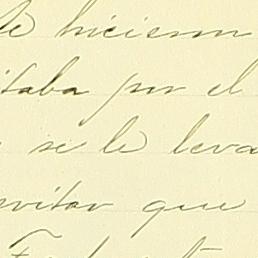 le hicieron
itaba por el
se le leva
evitar que